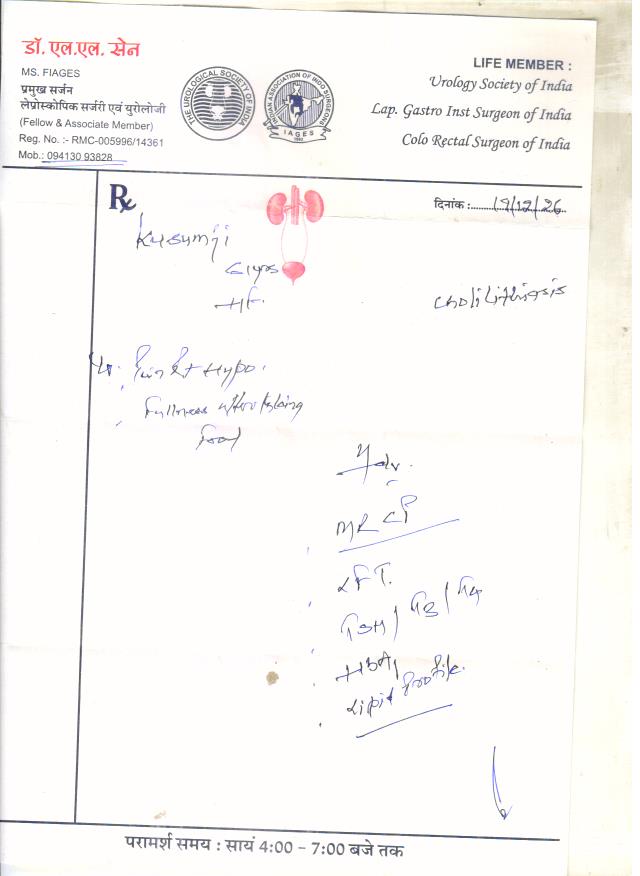 डॉ. एल.एल. सेन
MS. FIAGES
प्रमुख सर्जन
लेप्रोस्कोपिक सर्जरी एवं युरोलोजी
(Fellow & Associate Member)
Reg. No. :- RMC-005996/14361
Mob.: 094130 93828
THE UROLOGICAL SOCIETY OF INDIA
INDIAN ASSOCIATION OF ENDO SURGEONS
IAGES
LIFE MEMBER :
Urology Society of India
Lap. Gastro Inst Surgeon of India
Colo Rectal Surgeon of India
Rx
दिनांक :
Kusumji
61yrs
Cholilithiasis
Pain Rt Hypo.
Fullness after taking
food
Adv.
MRCP
LFT.
TSH/T3/T4
HBA1
Lipid Profile.
परामर्श समय : सायं 4:00 – 7:00 बजे तक